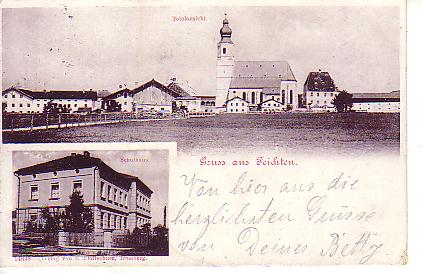 Totalansicht.
Gruss aus Feichten.
Schulhaus.
Von hier aus die
herzlichsten Grüsse
von Deiner Betty
Verlag von